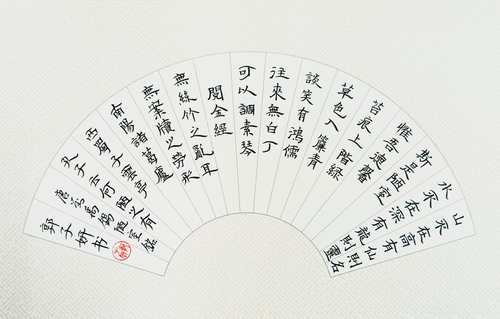 山不在高有仙則名
水不在深有龍則靈
斯是陋室
惟吾德馨
苔痕上階綠
草色入簾青
談笑有鴻儒
往來無白丁
可以調素琴
閱金經
無絲竹之亂耳
無案牘之勞形
南陽諸葛廬
西蜀子雲亭
孔子云何陋之有
唐劉禹錫陋室銘
郭子妍书